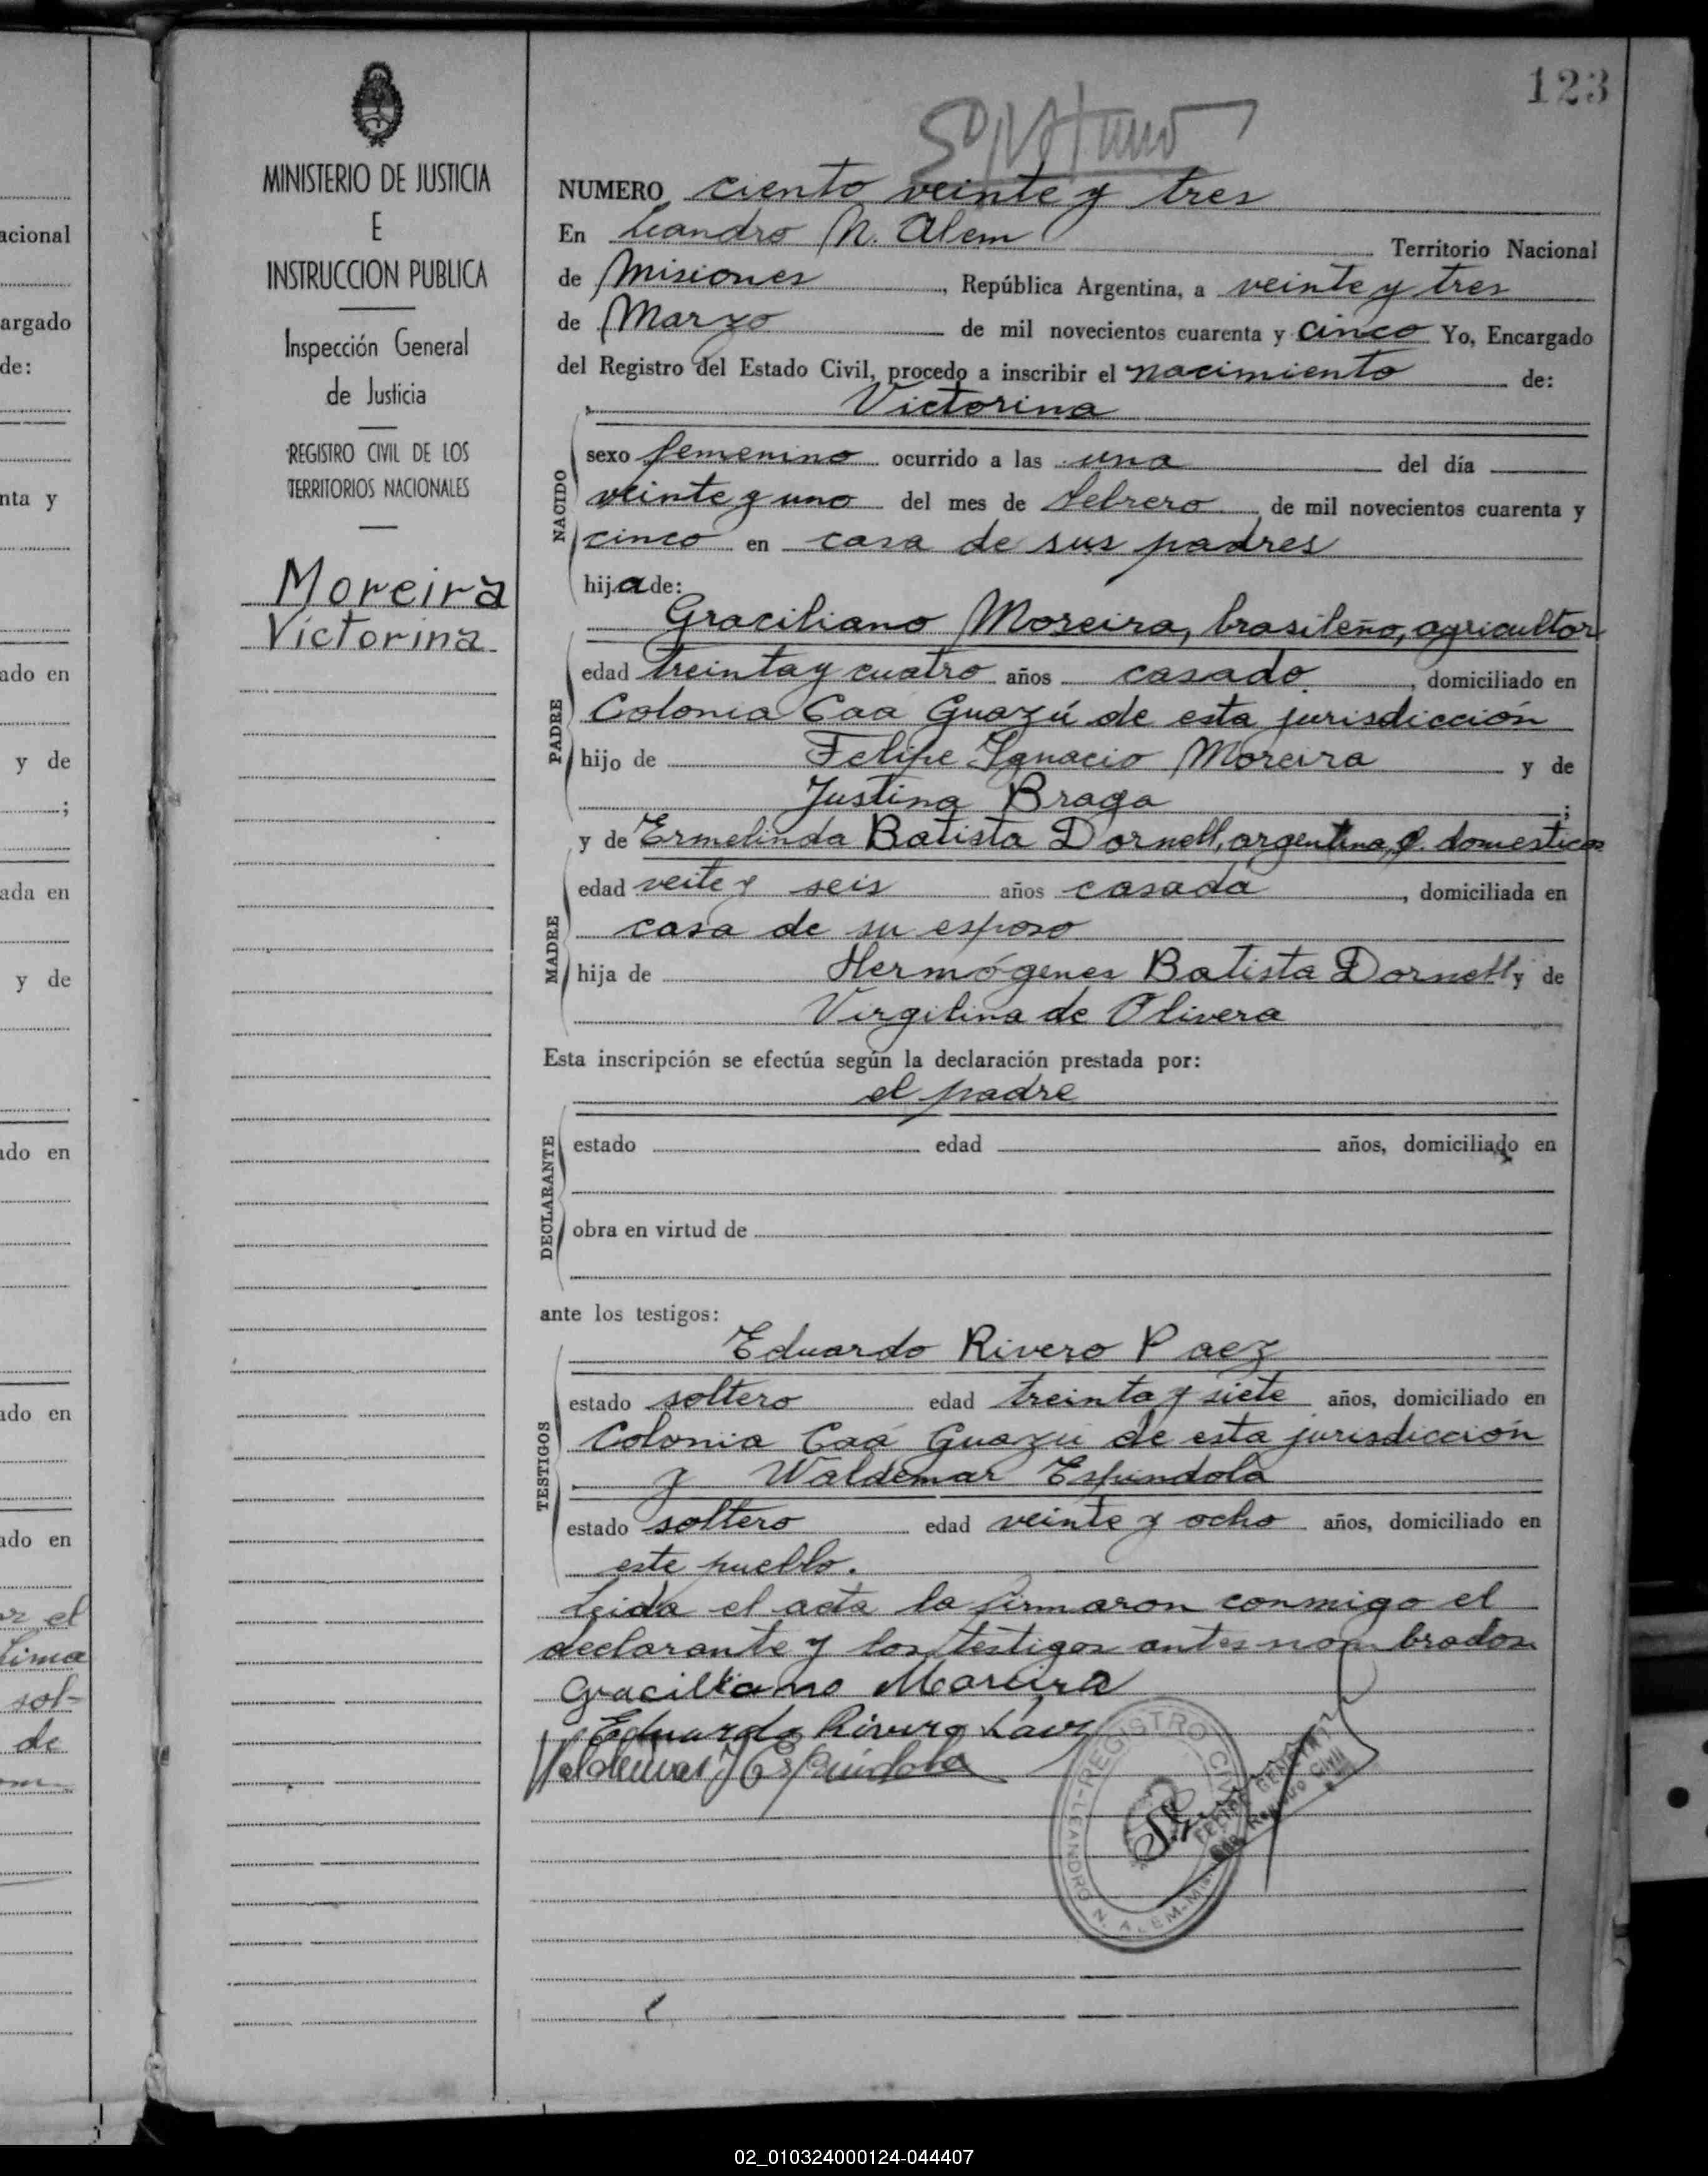 123
NUMERO ciento veinte y tres
En Leandro N. Alem Territorio Nacional
de Misiones, República Argentina, a veinte y tres
de Marzo de mil novecientos cuarenta y cinco Yo, Encargado
del Registro del Estado Civil, procedo a inscribir el nacimiento de:
Victorina
sexo femenino ocurrido a las una del día
veinte y uno del mes de febrero, de mil novecientos cuarenta y
cinco en casa de sus padres
hija de:
Graciliano Moreira, brasileño, agricultor
edad treinta y cuatro años casado, domiciliado en
Colonia Caa Guazú de esta jurisdicción
hijo de Felipe Ignacio Moreira y de
Justina Braga;
y de Ermelinda Batista Dornell, argentina, q. domesticos
edad veite y seis años casada, domiciliada en
casa de su esposo
hija de Hermógenes Batista Dornell y de
Virgilina de Olivera
Esta inscripción se efectúa según la declaración prestada por:
el padre
estado edad años, domiciliado en
obra en virtud de
ante los testigos:
Eduardo Rivero Paez
estado soltero edad treinta y siete años, domiciliado en
Colonia Caá Guazú de esta jurisdicción
y Waldemar Espindola
estado soltero edad veinte y ocho años, domiciliado en
este pueblo.
Leida el acta la firmaron conmigo el
declarante y los testigos antes nombrados
Graciliano Moreira
Eduardo Rivero Paez
Valdemar Espindola
REGISTRO CIVIL
LEANDRO N. ALEM
Registro Civil
NACIDO
PADRE
MADRE
DECLARANTE
TESTIGOS
MINISTERIO DE JUSTICIA
E
INSTRUCCION PUBLICA
Inspección General
de Justicia
REGISTRO CIVIL DE LOS
TERRITORIOS NACIONALES
Moreira
Victorina
acional
argado
de:
nta y
ado en
y de
;
ada en
y de
ado en
ado en
ado en
or el
sol-
de
02_010324000124-044407